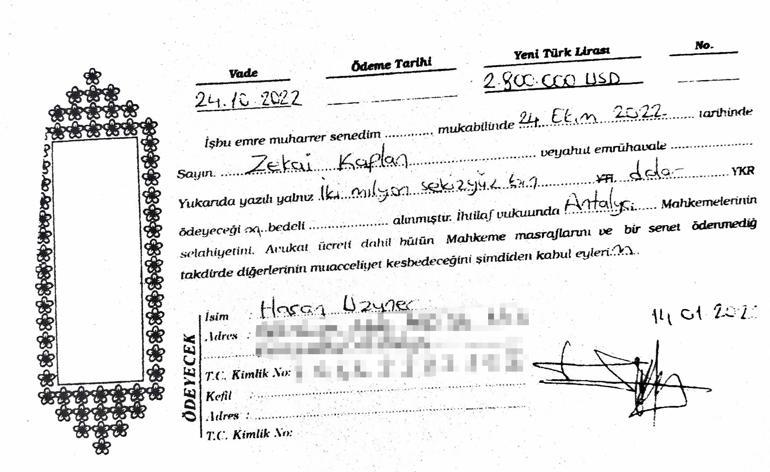 Vade Ödeme Tarihi Yeni Türk Lirası No.
24.10.2022 2.800.000 USD
İşbu emre muharrer senedim ............ mukabilinde 24 Ekim 2022 tarihinde
Sayın. Zekai Kaplan veyahut emrühavale
Yukarıda yazılı yalnız İki milyon sekizyüz bin dolar YKR
ödeyeceğim. bedeli ............ alınmıştır. İhtilaf vukuunda Antalya Mahkemelerinin
selahiyetini. Avukat ücreti dahil bütün Mahkeme masraflarını ve bir senet ödenmediğ
takdirde diğerlerinin muacceliyet kesbedeceğini şimdiden kabul eylerim.
ÖDEYECEK
İsim : Hasan Uzuner
14.01.202
Adres :
T.C. Kimlik No:
Kefil :
Adres :
T.C. Kimlik No: